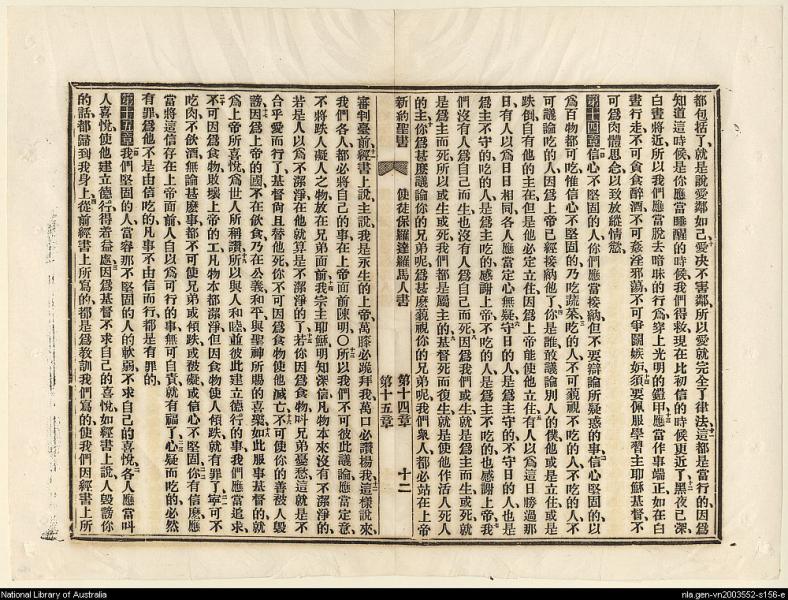 都包括了、就是說愛鄰如己、愛決不害鄰、所以愛就完全了律法、這都是當行的、因爲
知道這時候是你應當睡醒的時候、我們得救、現在比初信的時候更近了、黑夜已深、
白晝將近、所以我們應當脫去暗昧的行爲、穿上光明的鎧甲、應當作事端正、如在白
晝行走、不可貪食醉酒、不可姦淫邪蕩、不可爭鬭嫉妬、須要佩服學習主耶穌基督、不
可爲肉體思念、以致放縱情慾、
第十四章 信心不堅固的人、你們應當接納、但不要辯論所疑惑的事、信心堅固的、以
爲百物都可吃、惟信心不堅固的、乃吃蔬菜、吃的人、不可藐視不吃的人、不吃的人、不
可議論吃的人、因爲上帝已經接納他了、你是誰、敢議論別人的僕、他或是立住、或是
跌倒、自有他的主在、但是他必定立住、因爲上帝能使他立住、有人以爲這日勝過那
日、有人以爲日日相同、各人應當定心無疑、守日的人、是爲主守的、不守日的人、也是
爲主不守的、吃的人、是爲主吃的、感謝上帝、不吃的人、是爲主不吃的、也感謝上帝、我
們沒有人爲自己而生、也沒有人爲自己而死、因爲我們或生、就是爲主而生、或死、就
是爲主而死、所以或生或死、我們都是屬主的、基督死而復生、就是使他作活人死人
的主、你爲甚麼議論你的兄弟呢、爲甚麼藐視你的兄弟呢、我們衆人、都必站在上帝
新約聖書 使徒保羅達羅馬人書 第十四章 第十五章 十二
審判臺前、經書上說、主說、我是永生的上帝、萬膝必跪拜我、萬口必讚揚我、這樣說來、
我們各人都必將自己的事在上帝面前陳明〇所以我們不可彼此議論、應當定意、
不將跌人礙人之物放在兄弟面前、我宗主耶穌、明知深信凡物本來沒有不潔淨的、
若是人以爲不潔淨、在他就算是不潔淨的了、若你因爲食物、叫兄弟憂愁、這就是不
合乎愛而行了、基督尚且替他死、你不可因爲食物使他滅亡、不可使你的善被人毀
謗、因爲上帝的國、不在飲食、乃在公義和平與聖神所賜的喜樂、如此服事基督的、就
爲上帝所喜悅、爲世人所稱讚、所以與人和睦並彼此建立德行的事、我們應當追求、
不可因爲食物敗壞上帝的工、凡物本都潔淨、但因食物使人傾跌、就有罪了、寧可不
吃肉、不飲酒、無論甚麼事、都不可使兄弟或傾跌、或被礙、或信心不堅固、你有信麼、應
當將這信存在上帝面前、人自以爲可行的事、無可自責、就有福了、心疑而吃的、必然
有罪、爲他不是由信吃的、凡事不由信而行、都是有罪的、
第十五章 我們堅固的人、當容那不堅固的人的軟弱、不求自己的喜悅、各人應當叫
人喜悅、使他建立德行、得着益處、因爲基督不求自己的喜悅、如經書上說、人毀謗你
的話、都歸到我身上、從前經書上所寫的、都是爲教訓我們寫的、使我們因經書上所
National Library of Australia
nla.gen-vn2003552-s156-e